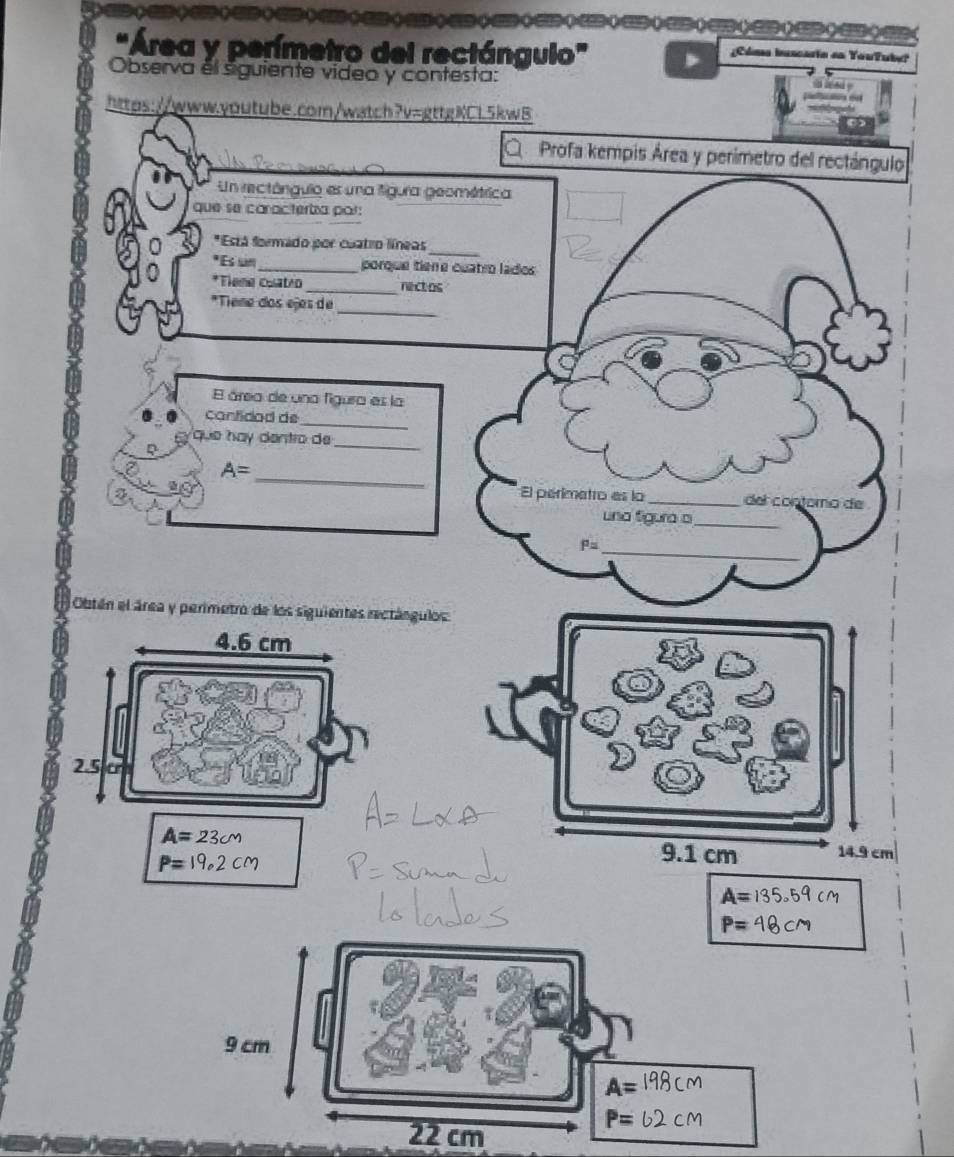 "Área y perímetro del rectángulo"
¿Cómo buscarlo en YouTube?
Observa el siguiente video y contesta:
https://www.youtube.com/watch?v=gttgKCL5kw8
Profa kempis Área y perimetro del rectángulo
Un rectángulo es una figura geométrica
que se caracteriza por:
*Está formado por cuatro líneas ____
*Es un ____ porque tiene cuatro lados
*Tiene cuatro ____ rectos
*Tiene dos ejes de ____
El área de una figura es la
cantidad de ____
que hay dentro de ____
A= ____
El perímetro es la ____ del contorno de
una figura o ____
P= ____
Obtén el área y perímetro de los siguientes rectángulos:
4.6 cm
2.5 cm
A= 23cm
P= 19.2 cm
A = L x A
P = suma de
lo lados
9.1 cm
14.9 cm
A= 135.59 cm
P= 48 cm
9 cm
22 cm
A= 198 cm
P= 62 cm